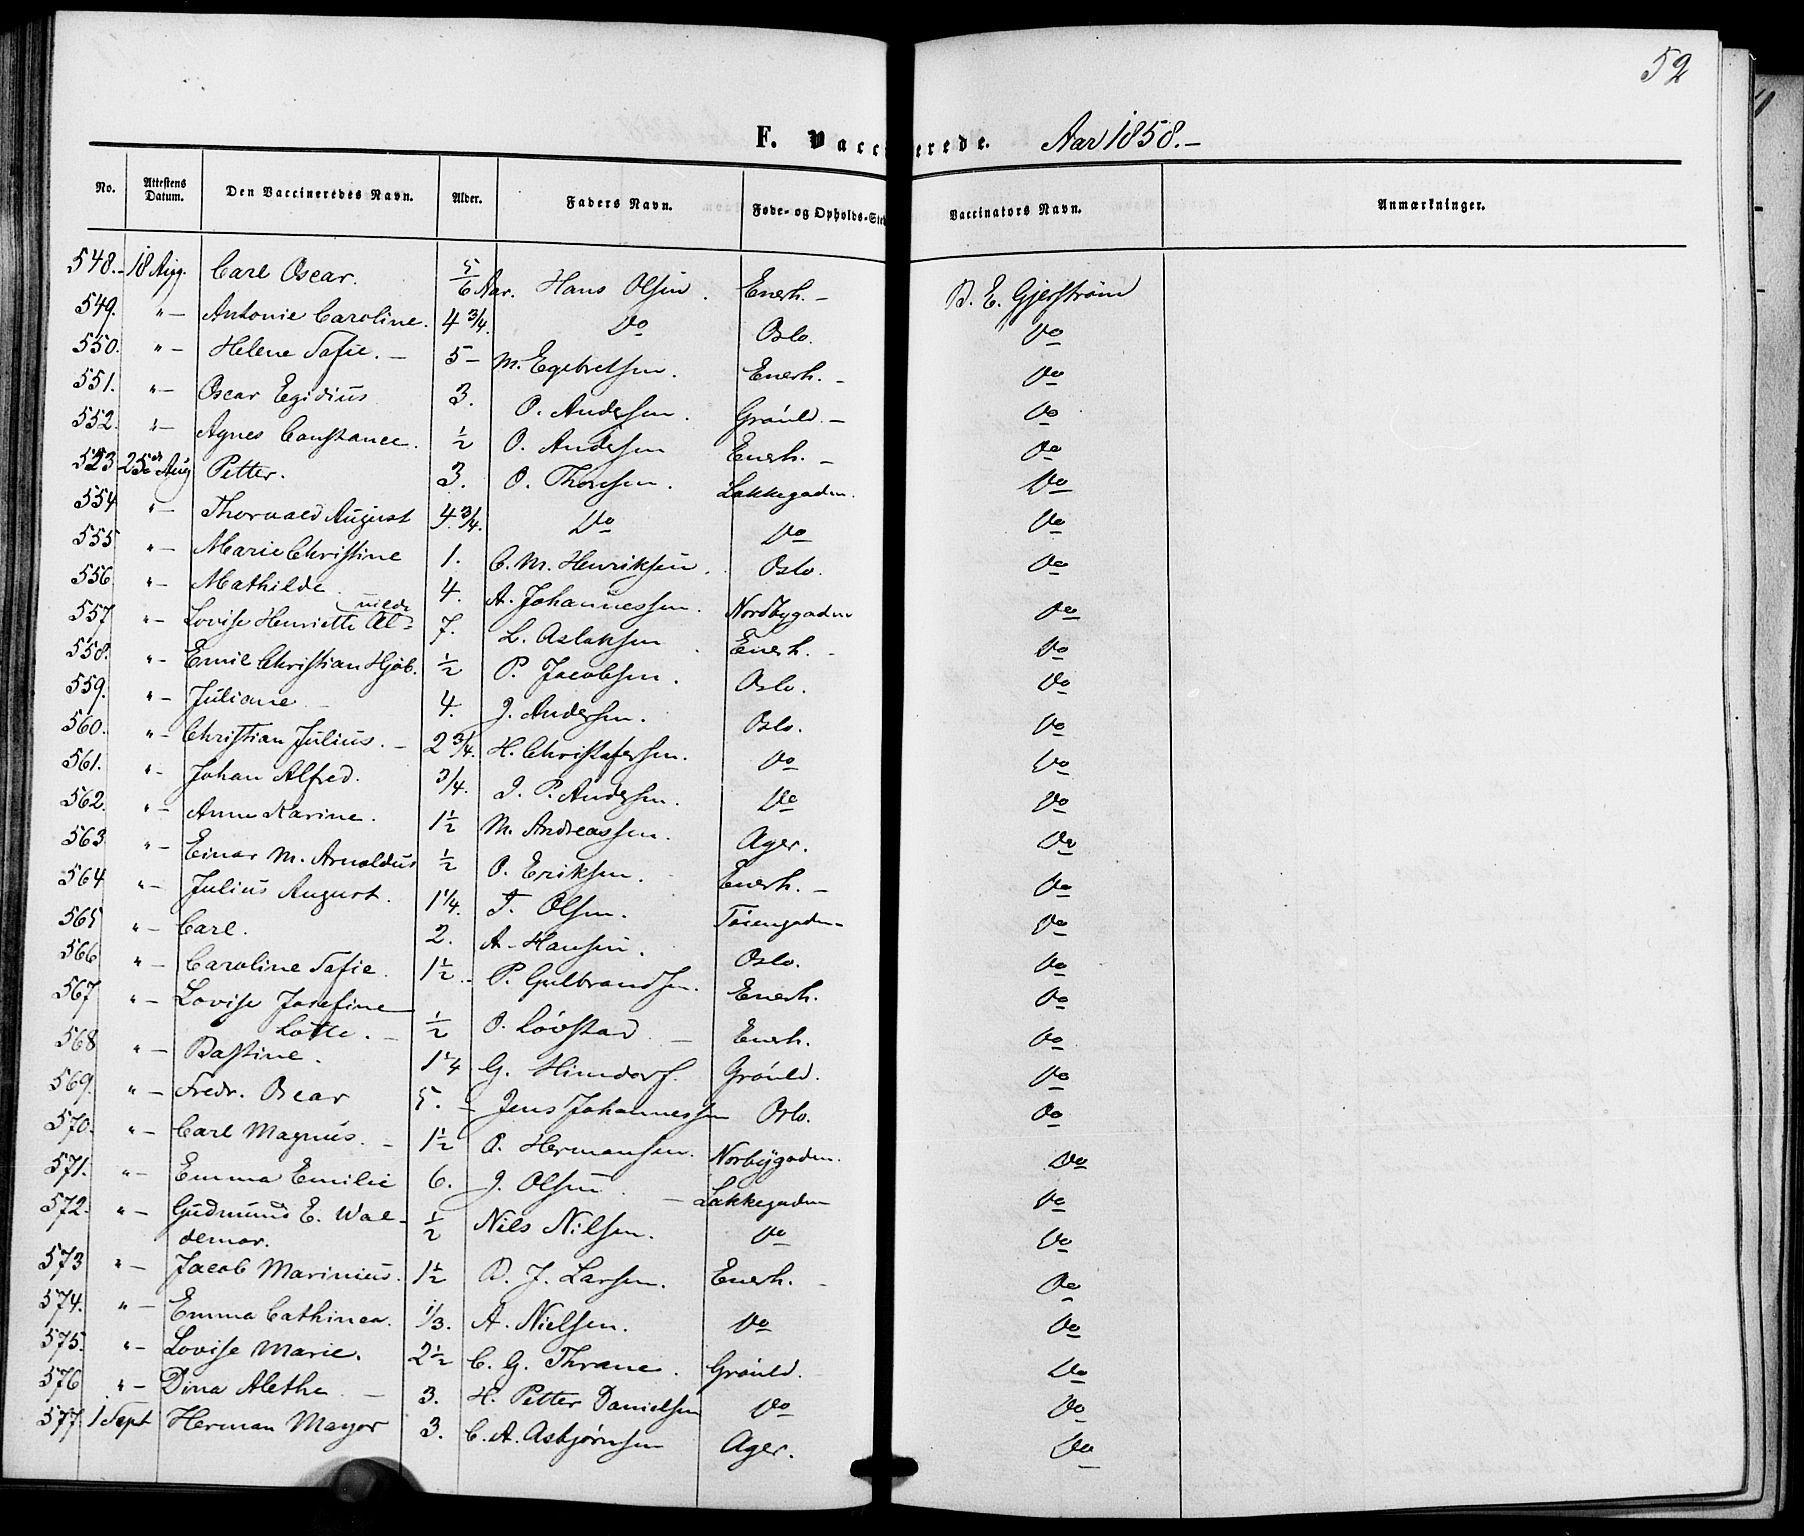 52
F. Vaccinerede. Aar 1858.-
No. Attestens Datum. Den Vaccineredes Navn. Alder. Faders Navn. Føde- og Opholds-Sted Vaccinators Navn. Anmærkninger.
548.- 18 Aug. Carl Oscar. 5/6 Aar. Hans Olsen. Enerh.- B. E. Gjerstrøm
549. "- Antonie Caroline. 4 3/4. Do Oslo. Do
550. "- Helene Sofie.- 5- M. Egebretsen. Enerh.- Do
551. "- Oscar Egidius 3. O. Andersen. Grønld.- Do
552. "- Agnes Constance. 1/2 O. Andersen Enerh.- Do
553 25de Aug Petter. 3. O. Thoresen. Lakkegaden. Do
554 "- Thorvald August 4 3/4. Do Do Do
555 "- Marie Christine 1. C. M. Henriksen. Oslo. Do
556 "- Mathilde. 4. A. Johannessen. Nordbygaden Do
557 "- Lovise Henriette Al= vilde 7. L. Aslaksen Enerh.- Do
558. "- Emil Christian Hjab. 1/2 P. Jacobsen. Oslo. Do
559. "- Juliane- 4. J. Andersen. Oslo. Do
560. "- Christian Julius.- 2 3/4. H. Christofersen. Do Do
561. "- Johan Alfred. 3/4. J. P. Andersen. Do Do
562. "- Anne Karine. 1 1/2 M. Andreassen. Ager. Do
563 "- Einar M. Arnoldus 1/2 O. Eriksen. Enerh.- Do
564 "- Julius August. 1 1/4. T. Olsen. Tøiengaden- Do
565 "- Carl. 2. A. Hansen. Oslo. Do
566 "- Caroline Sofie. 1 1/2- P. Gulbrandsen. Enerh. Do
567 "- Lovise Josefine
Lotte.- 1/2 O. Løvstad- Enerh. Do
568 "- Bastine. 1 1/4 G. Hinndorf. Grønld. Do
569. "- Fredr. Oscar 5.- Jens Johannessen Oslo. Do
570. "- Carl Magnus.- 1 1/2 O. Hermansen. Norbygaden. Do
571. "- Emma Emilie 6. J. Olsen- Lakkegaden Do
572. "- Gudmund E. Wal-
demar. 1/2 Nils Nilsen. Do Do
573 "- Jacob Marinius. 1 1/2 D. J. Larsen. Enerh.- Do
574. "- Emma Cathinea. 1/3. A. Nielsen. Do Do
575. "- Lovise Marie. 2 1/2 C. G. Thrane. Grønld. Do
576 "- Dina Alethe- 3. H. Petter Danielsen Do Do
577. 1 Sept Herman Mayor 3. C. A. Asbjørnsen Ager. Do